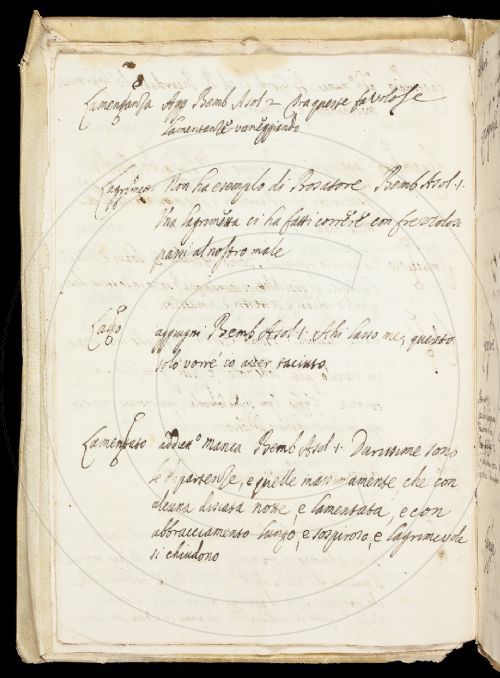 Lamentanza Agg Bemb Asol 2 Tra queste favolose
lamentanze vaneggiando
Lagrime Non ha esemplo di Prosatore Bemb Asol. 1.
Una lagrimetta ci ha fatti correre con frettolosi
passi al nostro male
Lasso aggiugni Bemb Asol. 1. Ahi lasso me, questo
solo vorre io aver taciuto
Lamentato manca Bemb Asol. 1. Durissime sono
le dipartenze, e quelle massimamente, che con
alcuna disiata notte, e lamentata, e con
abbracciamento lungo, e sospiroso, e lagrimevole
si chiudono